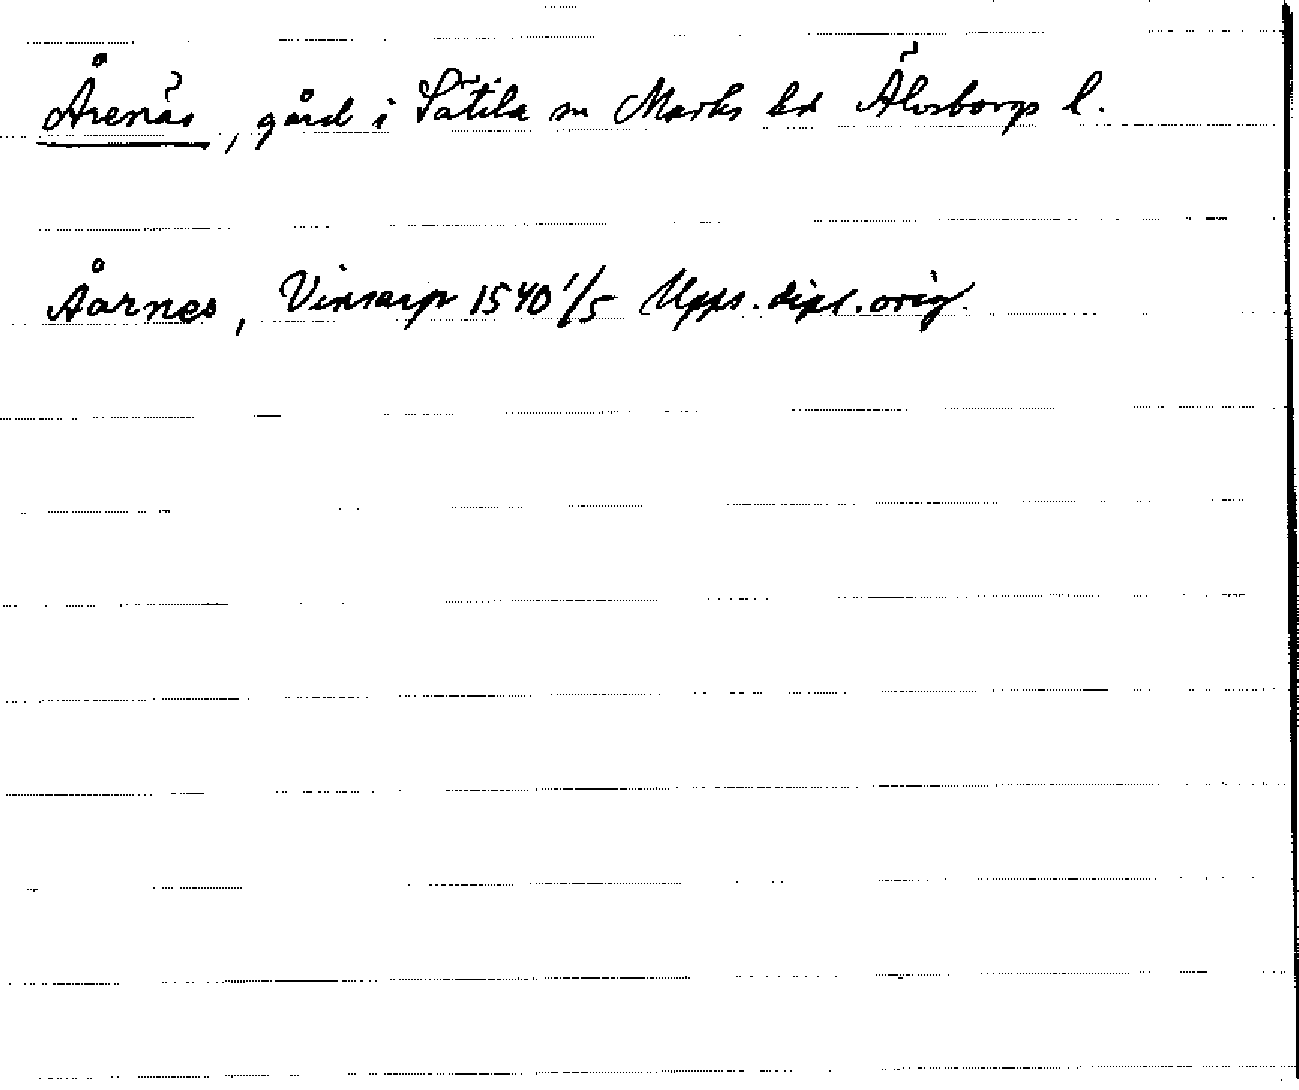 Årenäs, gård i Sätila sn Marks hd Älvsborgs l.
Åarnes, Vinsarp 1540 1/5 Upps. dipl. orig.